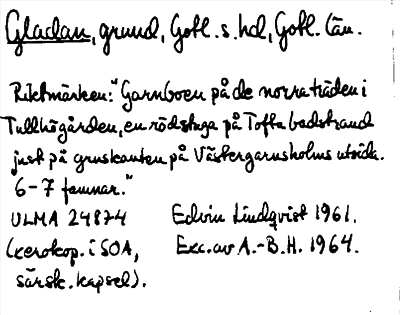 Gladan, grund, Gotl. s. hd, Gotl. län.
Riktmärken: "Garnboen på de norra träden i
Tullhögården, en rödstuga på Tofta badstrand
just på gruskanten på Västergarnsholms utsida.
6-7 famnar."
ULMA 24874 Edvin Lindqvist 1961.
(xerokop. i SOA, Exc. av A.-B.H. 1964.
särsk. kapsel).